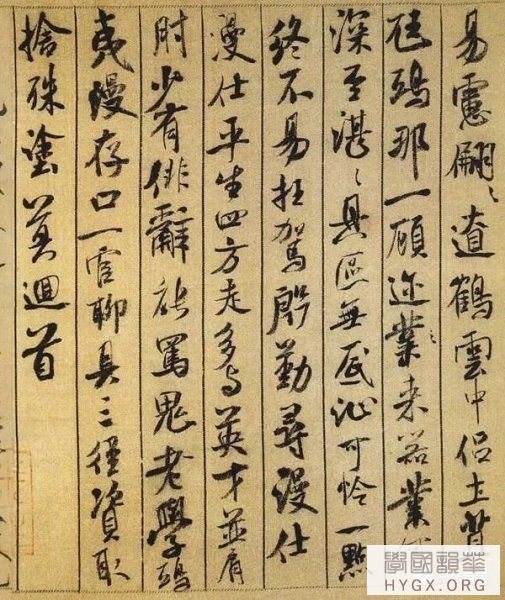 易慮翩〻遼鶴雲中侶土苴
尪鴟那一顧迩業来器業
深至湛〻具區無底沚可怜一點
終不易枉駕殷勤尋漫仕
漫仕平生四方走多与英才並肩
肘少有俳辭能罵鬼老學鴟
夷漫存口一官聊具三徑資取
捨殊塗莫迴首
學國韻華
HYGX.ORG